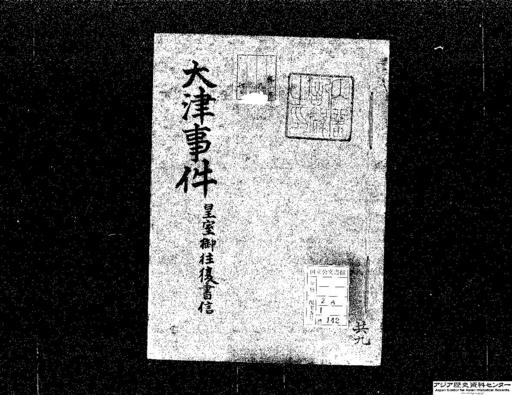 大津事件
皇室御往復書信
国立公文書館
2A
1
142
共九
アジア歴史資料センター
Japan Center for Asian Historical Records